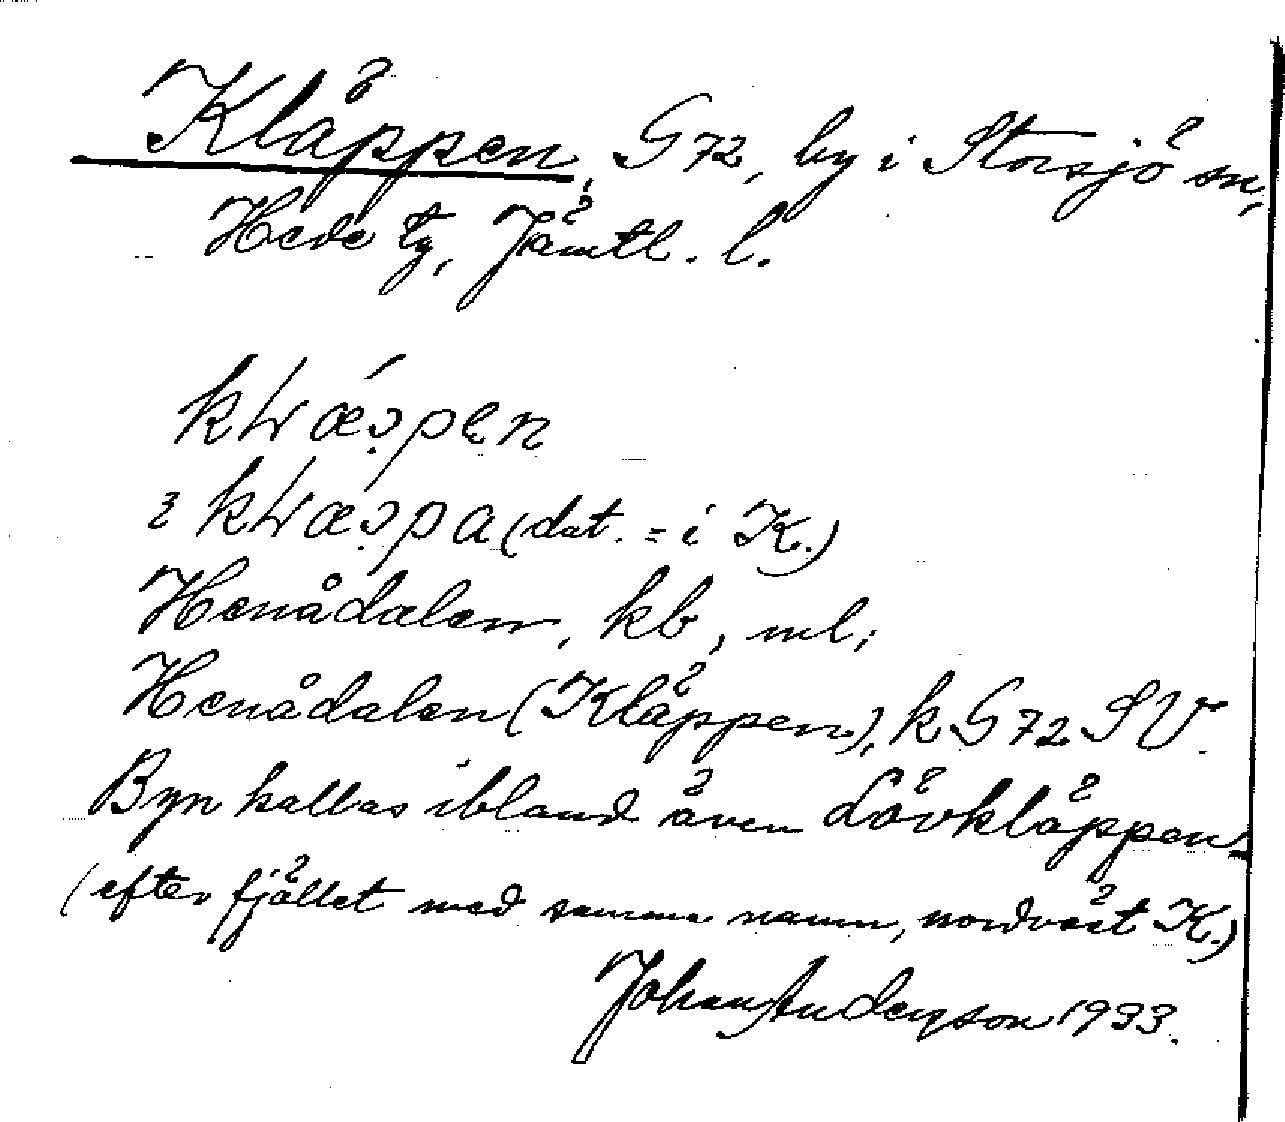 Kläppen, G 72, by i Storsjö sn,
Hede tg, Jämtl. l.
(dat. = i K.)
Henådalen, kb, ml;
Henådalen (Kläppen), k G 72 SV.
Byn kallas ibland även Lövkläppen
(efter fjället med samma namn, nordväst K.)
Johan Anderson 1933.